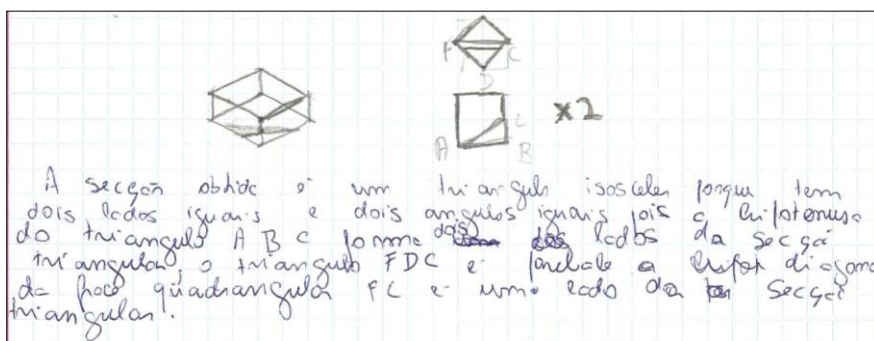 F C
D
x2
C
A B
A secçao obtida é um triangulo isosceles porque tem
dois lados iguais e dois angulos iguais pois a hipotenusa
do triangulo A B C forma dois lados da secçã
triangular, o triangulo FDC é a diagona
da face quadrangular FC é um lado da secçã
triangular.